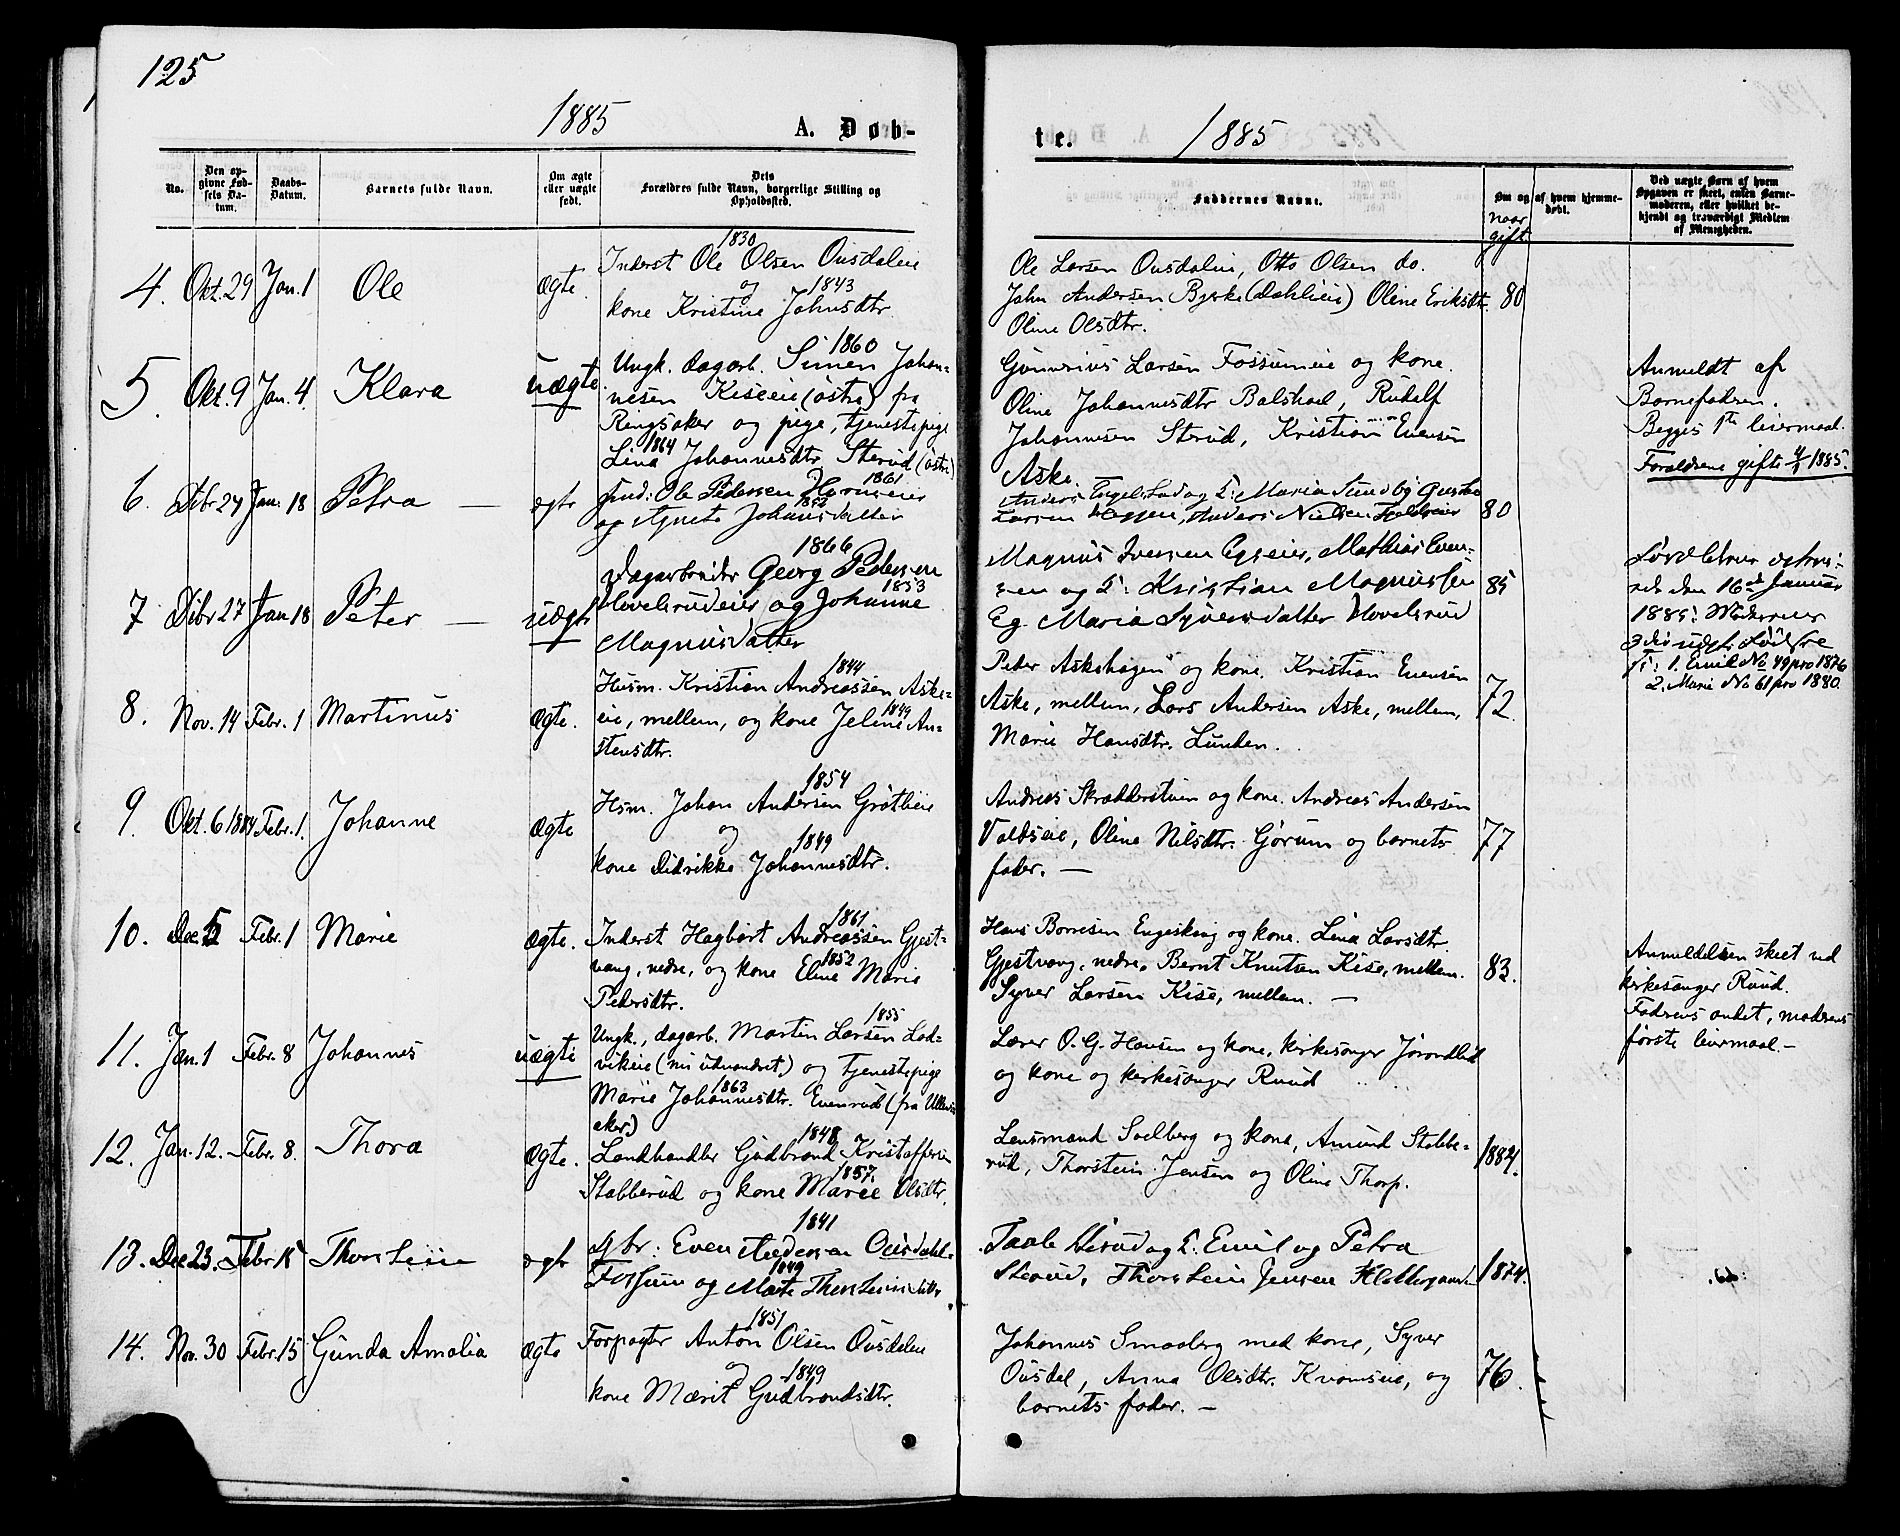 125
1885
A. Døb-
No.
Den op-
givne Fød-
sels Da-
tum.
Daabs-
Datum.
Barnets fulde Navn.
Om ægte
eller uægte
født.
Dets
Forældres fulde Navn, borgerlige Stilling og
Opholdssted.
4. Okt. 29 Jan. 1 Ole ægte.
1830
Inderst Ole Olsen Ousdaleie
og 1843
kone Kristine Johnsdtr.
5. Okt. 9 Jan. 4. Klara uægte.
1860
Ungk. dagarb. Simen Johan-
nesen Kiseeie (østre) fra
Ringsaker og pige, tjenestepige
1864
Lina Johannesdtr. Sterud (østre)
6. Dcbr 24 Jan. 18 Petra — ægte
1861
Ind: Ole Pedersen
og Agnete Johansdatter
7 Dcbr 27 Jan 18 Peter — uægte
1866
Dagarbeider Georg Pedersen
1853
Hovelsrudeier og Johanne
Magnusdatter
8. Nov. 14 Febr. 1 Martinus ægte.
1844
Husm. Kristian Andreassen Aske-
1849
eie, mellem, og kone Jeline An-
stensdtr.
9. Okt. 6 1884 Febr. 1. Johanne ægte
1854
Hsm. Johan Andersen Grøtlieie
og 1849
kone Didrikke Johannesdtr.
10. Dec. 5 Febr. 1 Marie ægte.
1861
Inderst Hagbart Andreassen Gjest-
1852
vang, nedre, og kone Eline Marie
Pedersdtr.
11. Jan. 1 Febr. 8 Johannes uægte
1855
Ungk., dagarb. Martin Larsen Lod-
vikeie (nu udvandret.) og tjenestepige
1863
Marie Johannesdtr. Evenrud (fra Ullens
aker)
12. Jan. 12. Febr. 8. Thora ægte.
1848
Landhandler Gudbrand Kristoffersen
1857.
Stabberud og kone Marie Olsdtr.
13. Dec 23. Febr 15 Thorstein ægte
1841
Gbr: Even Andersen Ousdahl-
1849
Fossum og Marte Thorsteinsdatter
14. Nov. 30 Febr. 15 Gunda Amalia ægte
1851
Forpagter Anton Olsen Ousdalen
og 1849
kone Marit Gudbrandsdtr.
te.
1885
Faddernes Navne.
Om og af hvem hjemme-
døbt.
naar
gift.
Ved uægte Børn af hvem
Opgaven er skeet, enten Barne-
moderen, eller hvilket be-
kjendt og troværdigt Medlem
af Menigheden.
Ole Larsen Ousdalen, Otto Olsen do.
John Andersen Bjerke (Dahleie) Oline Eriksdtr. 80
Oline Olsdtr.
Gunerius Larsen Fossumeie og kone.
Oline Johannesdtr Balshoel, Rudolf
Johannesen Sterud, Kristian Evensen
Aske.
Anmeldt af
Barnefadren.
Begges 1ste leiermaal.
Forældrene gift 4/1 1885.
Engelstad og T: Maria Sundby Gusta
Larsen Anders Nielsen 80
Magnus Iversen Egeeier, Mathias Even-
sen og T: Kristian Magnussen 85
Eg. Maria Syversdatter Hovelsrud
den 16de Januar
1885. Moderens
3die uægte Født før
1. Emil No 49 pro 1876
2. Marie No 61 pro 1880.
Peter Askehagen og kone. Kristian Evensen
Aske, mellem, Lars Andersen Aske, mellem, 72.
Marie Hansdtr. Lunden.
Andreas Skrædderstuen og kone. Andreas Andersen
Voldseie, Oline Nilsdtr. Gjørum og barnets 77
fader. —
Hans Borresen Engeskoug og kone. Lina Larsdtr.
Gjestvang, nedre. Bernt Knutsen Kise, mellem. 83.
Syver Larsen Kise, mellem. —
Anmeldelsen skeet ved
kirkesanger Ruud.
Fadrens andet, modrens
første leiermaal.—
Lærer O. G. Hansen og kone, kirkesanger Jorandlid
og kone og kirkesanger Ruud
Lensmand Solberg og kone, Amund Stabbe-
rud, Thorstein Jensen og Oline Thorp. 1884.
Taale Hirud og T. Emil og Petra
Sterud, Thorstein Jensen 1874.
Johannes Smaaberg med kone, Syver
Ousdal, Anna Olsdtr. Kvamseie, og 76.
barnets fader. —